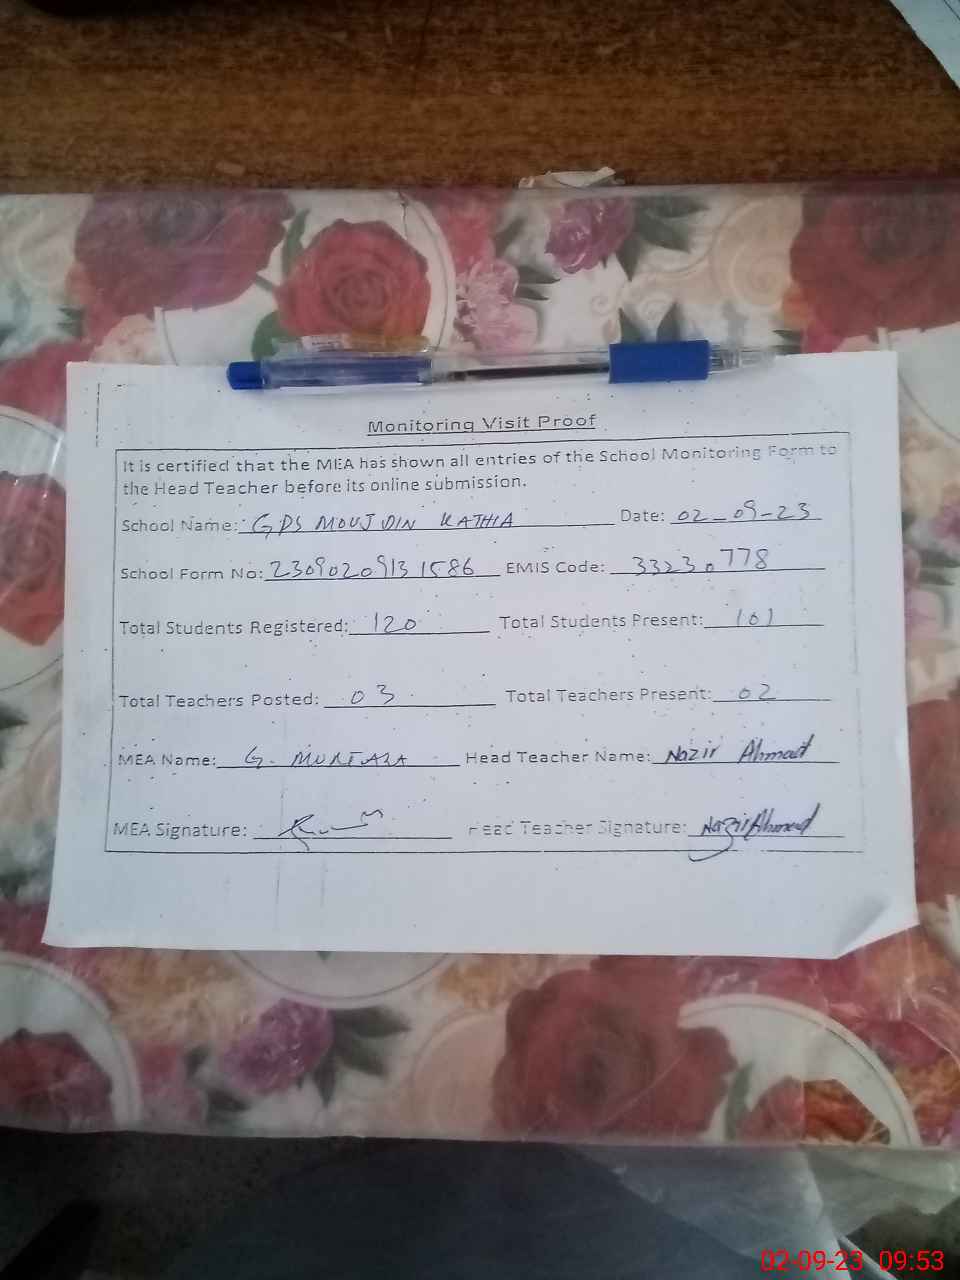 Monitoring Visit Proof
It is certified that the MEA has shown all entries of the School Monitoring Form to
the Head Teacher before its online submission.
School Name: GPS MOUJ DIN KATHIA Date: 02-09-23
School Form No: 2309020913 1586 EMIS Code: 33230778
Total Students Registered: 120 Total Students Present: 101
Total Teachers Posted: 03 Total Teachers Present: 02
MEA Name: G. MURTAZA Head Teacher Name: Nazir Ahmad
MEA Signature: Head Teacher Signature: Nazir Ahmed
02-09-23 09:53